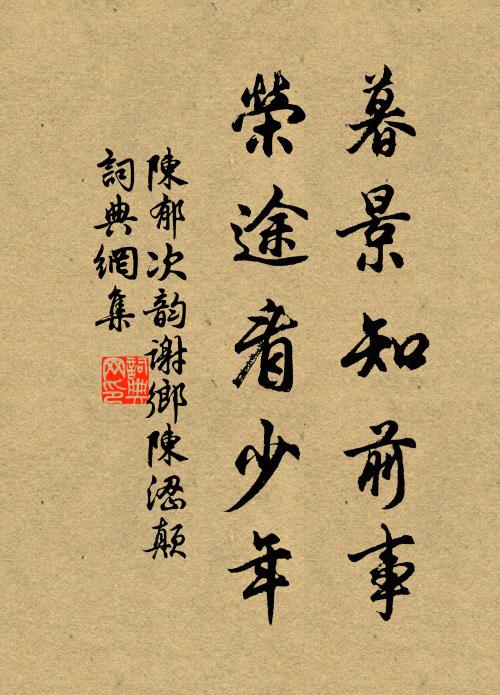 暮景知前事
榮途看少年
陳郁次韵謝鄉陳漊顛
詞典網集
詞典网印